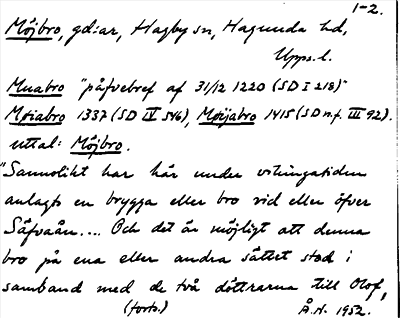 1-2.
Möjbro, gd:ar, Hagby sn, Hagunda hd,
Upps. l.
Muabro "påfvebref af 31/12 1220 (SD I 218)"
Møiabro 1337 (SD IV 546), Møijabro 1415 (SD n.f. III 92).
uttal: Möjbro.
"Sannolikt har här under vikingatiden
anlagts en brygga eller bro vid eller öfver
Säfvaån.... Och det är möjligt att denna
bro på ena eller andra sättet stod i
samband med de två döttrarna till Olof,
(forts.) Å.N. 1952.